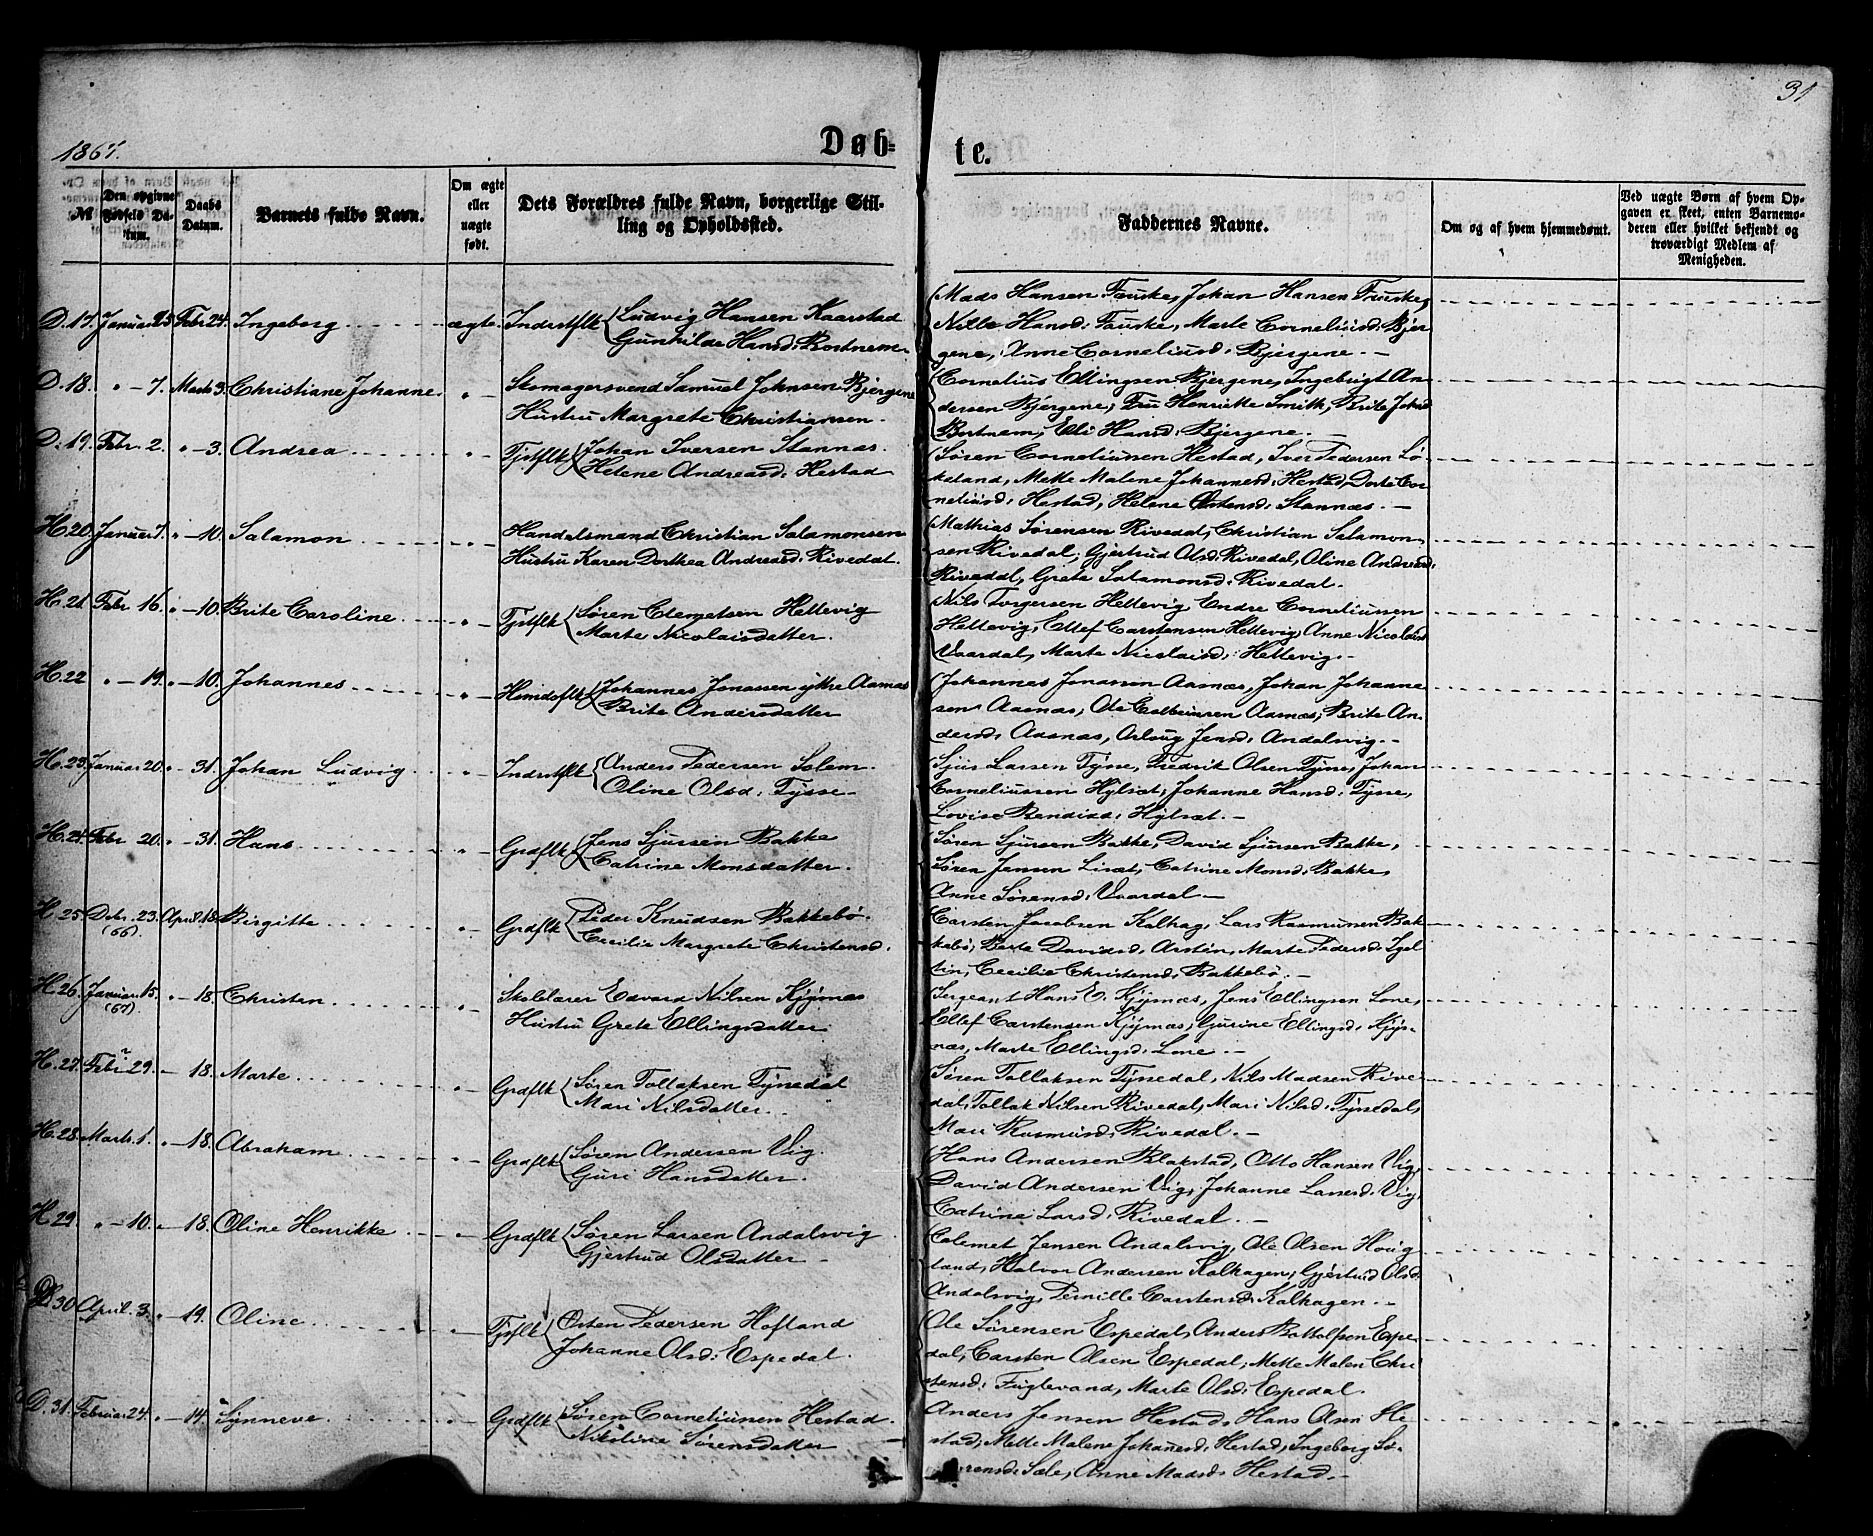 31
1867.
Døb=
te.
№
Den opgivne Fødsels Datum.
Daabs Datum.
Barnets fulde Navn.
Om ægte eller uægte født.
Dets Forældres fulde Navn, borgerlige Stilling og Opholdssted.
Faddernes Navne.
Om og af hvem hjemmedøbt.
Ved uægte Børn af hvem Opgaven er skeet, enten Barnemoderen eller hvilket bekjendt og troværdigt Medlem af Menigheden.
D. 17. Januar 25 Febr 24. Ingeborg ægte Indrstflk Ludvig Hansen Kaarstad
Gunhilde Hansd: Bortnem
Mads Hansen Fauske, Johan Hansen Fauske,
Nille Hansd: Fauske, Marte Corneliusd: Bjer
gene, Anne Corneliusd: Bjergene. –
D. 18. " – 7. Marts 3. Christiane Johanne. " – Skomagersvend Samuel Johnsen Bjergene
Hustru Margrete Christiansen.
Cornelius Ellingsen Bjergene, Ingebrigt An-
dersen Bjergene, Fru Henrikke Smith, Brite Johsd
Bortnem, Eli Hansd: Bjergene. –
D. 19. Febr. 2. " – 3. Andrea " – Tjstflk Johan Iversen Stannas.
Helene Andreasd: Hestad
Søren Corneliussen Hestad, Iver Pedersen Lø-
keland, Mette Malene Johannesd: Hestad, Dorte Cor-
neliusd: Hestad, Helene Østensd: Stannæs. –
H. 20. Januar 7. " – 10. Salamon " – Handelsmand Christian Salamonsen
Hustru Karen Dorthea Andreasd: Rivedal.
Mathias Sørensen Rivedal, Christian Salamon-
sen Rivedal, Gjertrud Olsd: Rivedal, Oline Andreasd:
Rivedal, Grete Salamonsd: Rivedal.
H. 21. Febr 16. " – 10. Brite Caroline " – Tjstflk Søren Clemetsen Hellevig
Marte Nicolaisdatter.
Nils Torgersen Hellevig, Endre Corneliussen
Hellevig, Ellef Carstensen Hellevig, Anne Nicolaisd
Vaardal, Marte Nicolaisd: Hellevig. –
H. 22 " – 19. " – 10. Johannes " – Hsmdsflk Johannes Jonassen ytre Aamas
Brite Andersdatter
Johannes Jonassen Aasnæs, Johan Johanne
sen Aasnas, Ole Colbeinsen Aasnæs, Brite An-
dersd: Aasnas, Aslaug Jensd: Andalsvig. –
H. 23. Januar 20. " – 31. Johan Ludvig " – Indrstflk Anders Pedersen Solem.
Oline Olsd: Tysse –
Sjur Larsen Tysse, Fredrik Olsen Tysse, Johan
Corneliussen Hylsæt, Johanne Hansd: Tysse,
Lovise Bendixd: Hylsæt. –
H. 24. Febr 20. " – 31. Hans " – Grdflk Jens Sjursen Bakke
Catrine Monsdatter.
Søren Sjursen Bakke, David Sjursen Bakke,
Søren Jensen Liset, Catrine Monsd: Bakke,
Anne Sørensd: Vaardal –
H. 25 Debr. 23. (66). April 18. Birgitte " – Grdflk Peder Knudsen Bakkebø.
Cecilie Margrete Christensd.
Carsten Jacobsen Kalhag, Lars Rasmussen Bak-
kebø, Berte Davidsd: Arstin, Marte Pedersd: Igel-
tin, Cecilie Christensd: Bakkebø. –
H. 26. Januar 15. (67) " – 18. Christen " – Skolelærer Edvard Nilsen Kjymas
Hustru Grete Ellingsdatter
Sergeant Hans E. Kjymæs, Jens Ellingsen Lone,
Ellef Carstensen Kjymæs, Gurine Ellingsd: Kjym-
næs, Marte Ellingsd: Lone. –
H. 27. Febr 29. – 18. Marte " – Grdflk Søren Tollaksen Tyssedal
Mari Nilsdatter. –
Søren Tollaksen Tyssedal, Nils Madsen Rive-
dal, Tollak Nilsen Rivedal, Mari Nilsd: Tyssedal,
Mari Rasmusd: Rivedal. –
H. 28. Marts 1. " – 18. Abraham " – Grdflk Søren Andersen Vig.
Guri Hansdatter.
Hans Andersen Blakstad, Otto Hansen Vig,
David Andersen Vig, Johanne Larsd: Vig,
Catrine Larsd: Rivedal. –
H. 29. " – 10. " – 18. Oline Henrikke " – Grdflk Søren Larsen Andalsvig
Gjertrud Olsdatter –
Colemet Jensen Andalsvig, Ole Olsen Houg
land, Halvor Andersen Kalhagen, Gjertrud Olsd:
Andalsvig, Pernille Carstensd: Kalhagen. –
D. 30 April. 3. " – 19. Oline " – Tjsflk Østen Pedersen Hofland
Johanne Olsd: Espedal.
Ole Sørensen Espedal, Anders Bottolfsen Espe-
dal, Carsten Olsen Espedal, Mette Malen Chri
stensd: Fuglevand, Marte Olsd: Espedal.
D. 31. Februar 24. " – 14. Synneve " – Grdflk Søren Corneliussen Hestad.
Nikoline Sørensdatter –
Anders Jensen Hestad, Hans Olsen He-
stad, Mette Malene Johanesd: Hestad, Ingeborg Sø-
rensd: Sæle, Anne Madsd: Hestad. –